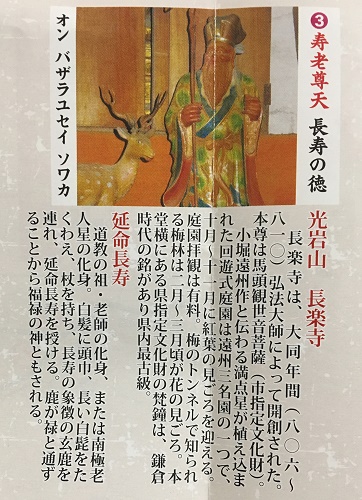 ❸寿老尊天 長寿の徳
オン バザラユセイ ソワカ
光岩山 長楽寺
長楽寺は、大同年間（八〇六〜
八一〇）弘法大師によって開創された。
本尊は馬頭観世音菩薩（市指定文化財）。
小堀遠州作と伝わる満点星が植え込ま
れた回遊式庭園は遠州三名園の一つで、
十月〜十一月に紅葉の見ごろを迎える。
庭園拝観は有料。梅のトンネルで知られ
る梅林は二月〜三月頃が花の見ごろ。本
堂横にある県指定文化財の梵鐘は、鎌倉
時代の銘があり県内最古級。
延命長寿
道教の祖・老師の化身、または南極老
人星の化身。白髪に頭巾、長い白髭をた
くわえ、杖を持ち、長寿の象徴の玄鹿を
連れ、延命長寿を授ける。鹿が禄と通ず
ることから福禄の神ともされる。